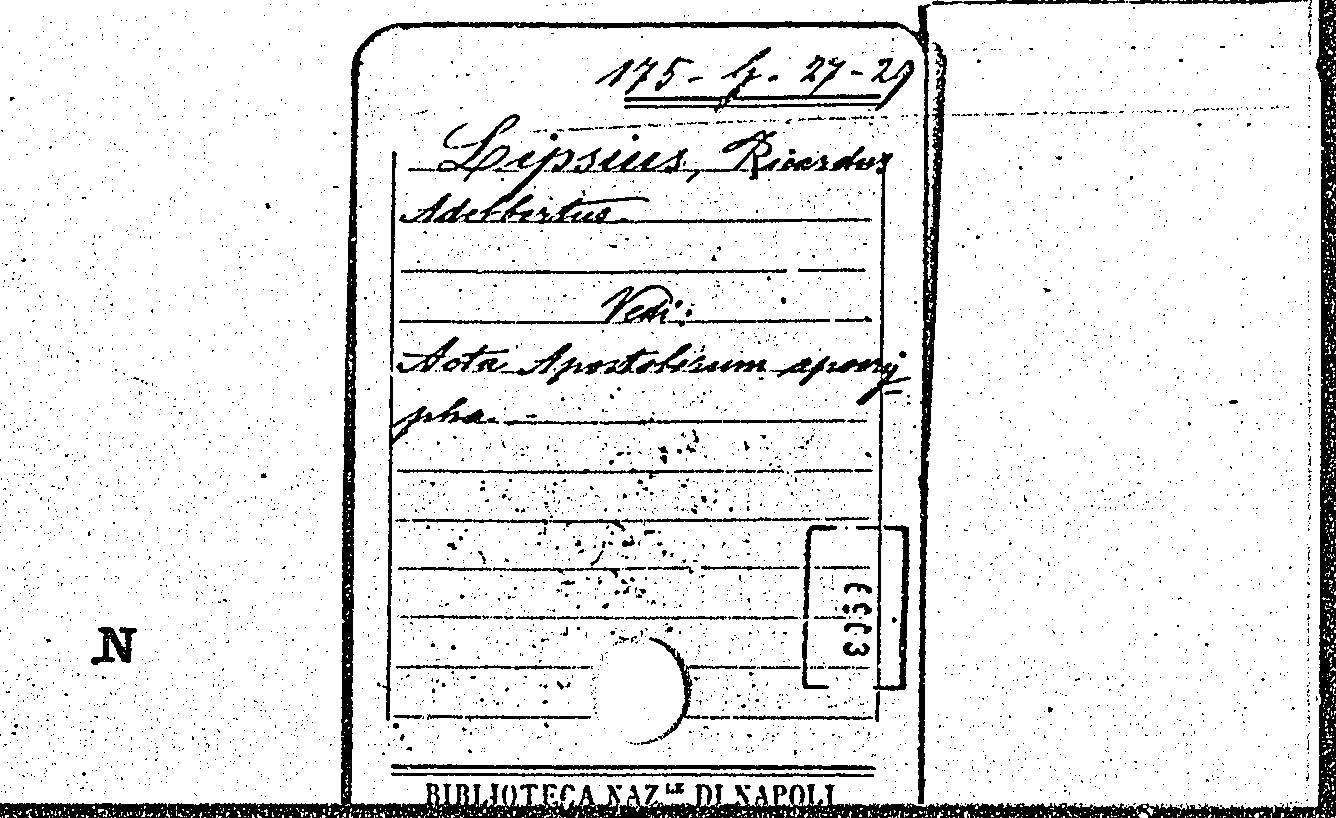 175-G. 27-29
Lipsius, Ricardus
Adelbertus.
Vedi:
Acta Apostolorum apocry
pha.
N
BIBLIOTECA NAZ.LE DI NAPOLI